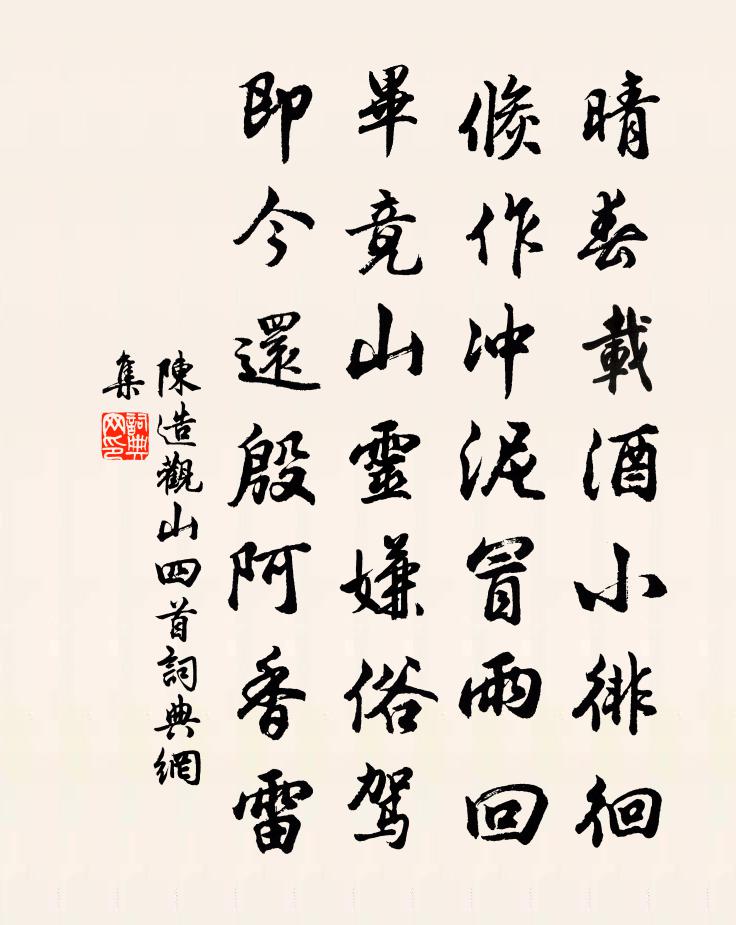 晴春載酒小徘徊
倐作冲泥冒雨回
畢竟山靈嫌俗駕
即今還殷阿香雷
陳造觀山四首詞典網
集
詞典网印